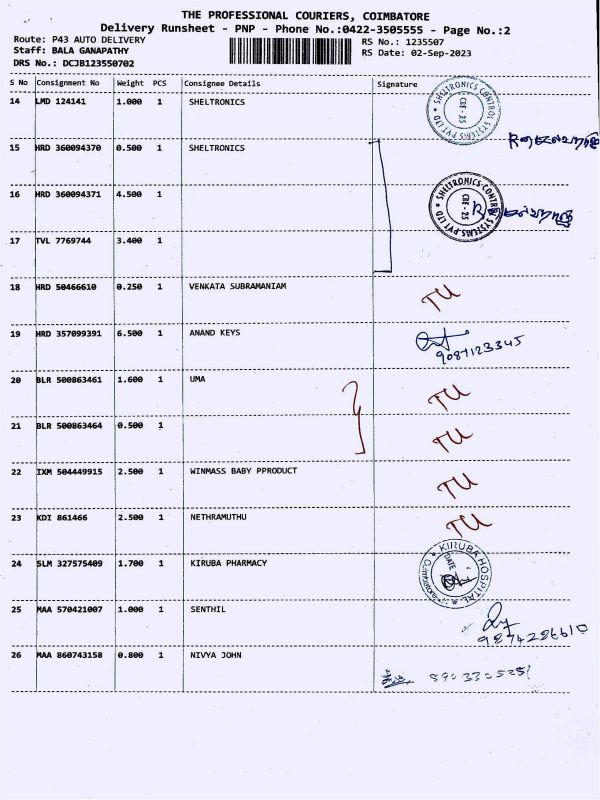 THE PROFESSIONAL COURIERS, COIMBATORE
Delivery Runsheet - PNP - Phone No.:0422-3505555 - Page No.:2
Route: P43 AUTO DELIVERY RS No.: 1235507
Staff: BALA GANAPATHY RS Date: 02-Sep-2023
DRS No.: DCJB123550702
S No Consignment No Weight PCS Consignee Details Signature
14 LMD 124141 1.000 1 SHELTRONICS
SHELTRONICS CONTROL SYSTEMS PVT LTD ★ CBE - 25
15 HRD 360094370 0.500 1 SHELTRONICS
16 HRD 360094371 4.500 1
SHELTRONICS CONTROL SYSTEMS PVT LTD ★ CBE - 25
17 TVL 7769744 3.400 1
18 HRD 50466610 0.250 1 VENKATA SUBRAMANIAM TU
19 HRD 357099391 6.500 1 ANAND KEYS
9087123345
20 BLR 500863461 1.600 1 UMA TU
21 BLR 500863464 0.500 1 TU
22 IXM 504449915 2.500 1 WINMASS BABY PPRODUCT TU
23 KDI 861466 2.500 1 NETHRAMUTHU TU
24 SLM 327575409 1.700 1 KIRUBA PHARMACY
KIRUBA HOSPITAL DATE
25 MAA 570421007 1.000 1 SENTHIL
9874286610
26 MAA 860743158 0.800 1 NIVYA JOHN